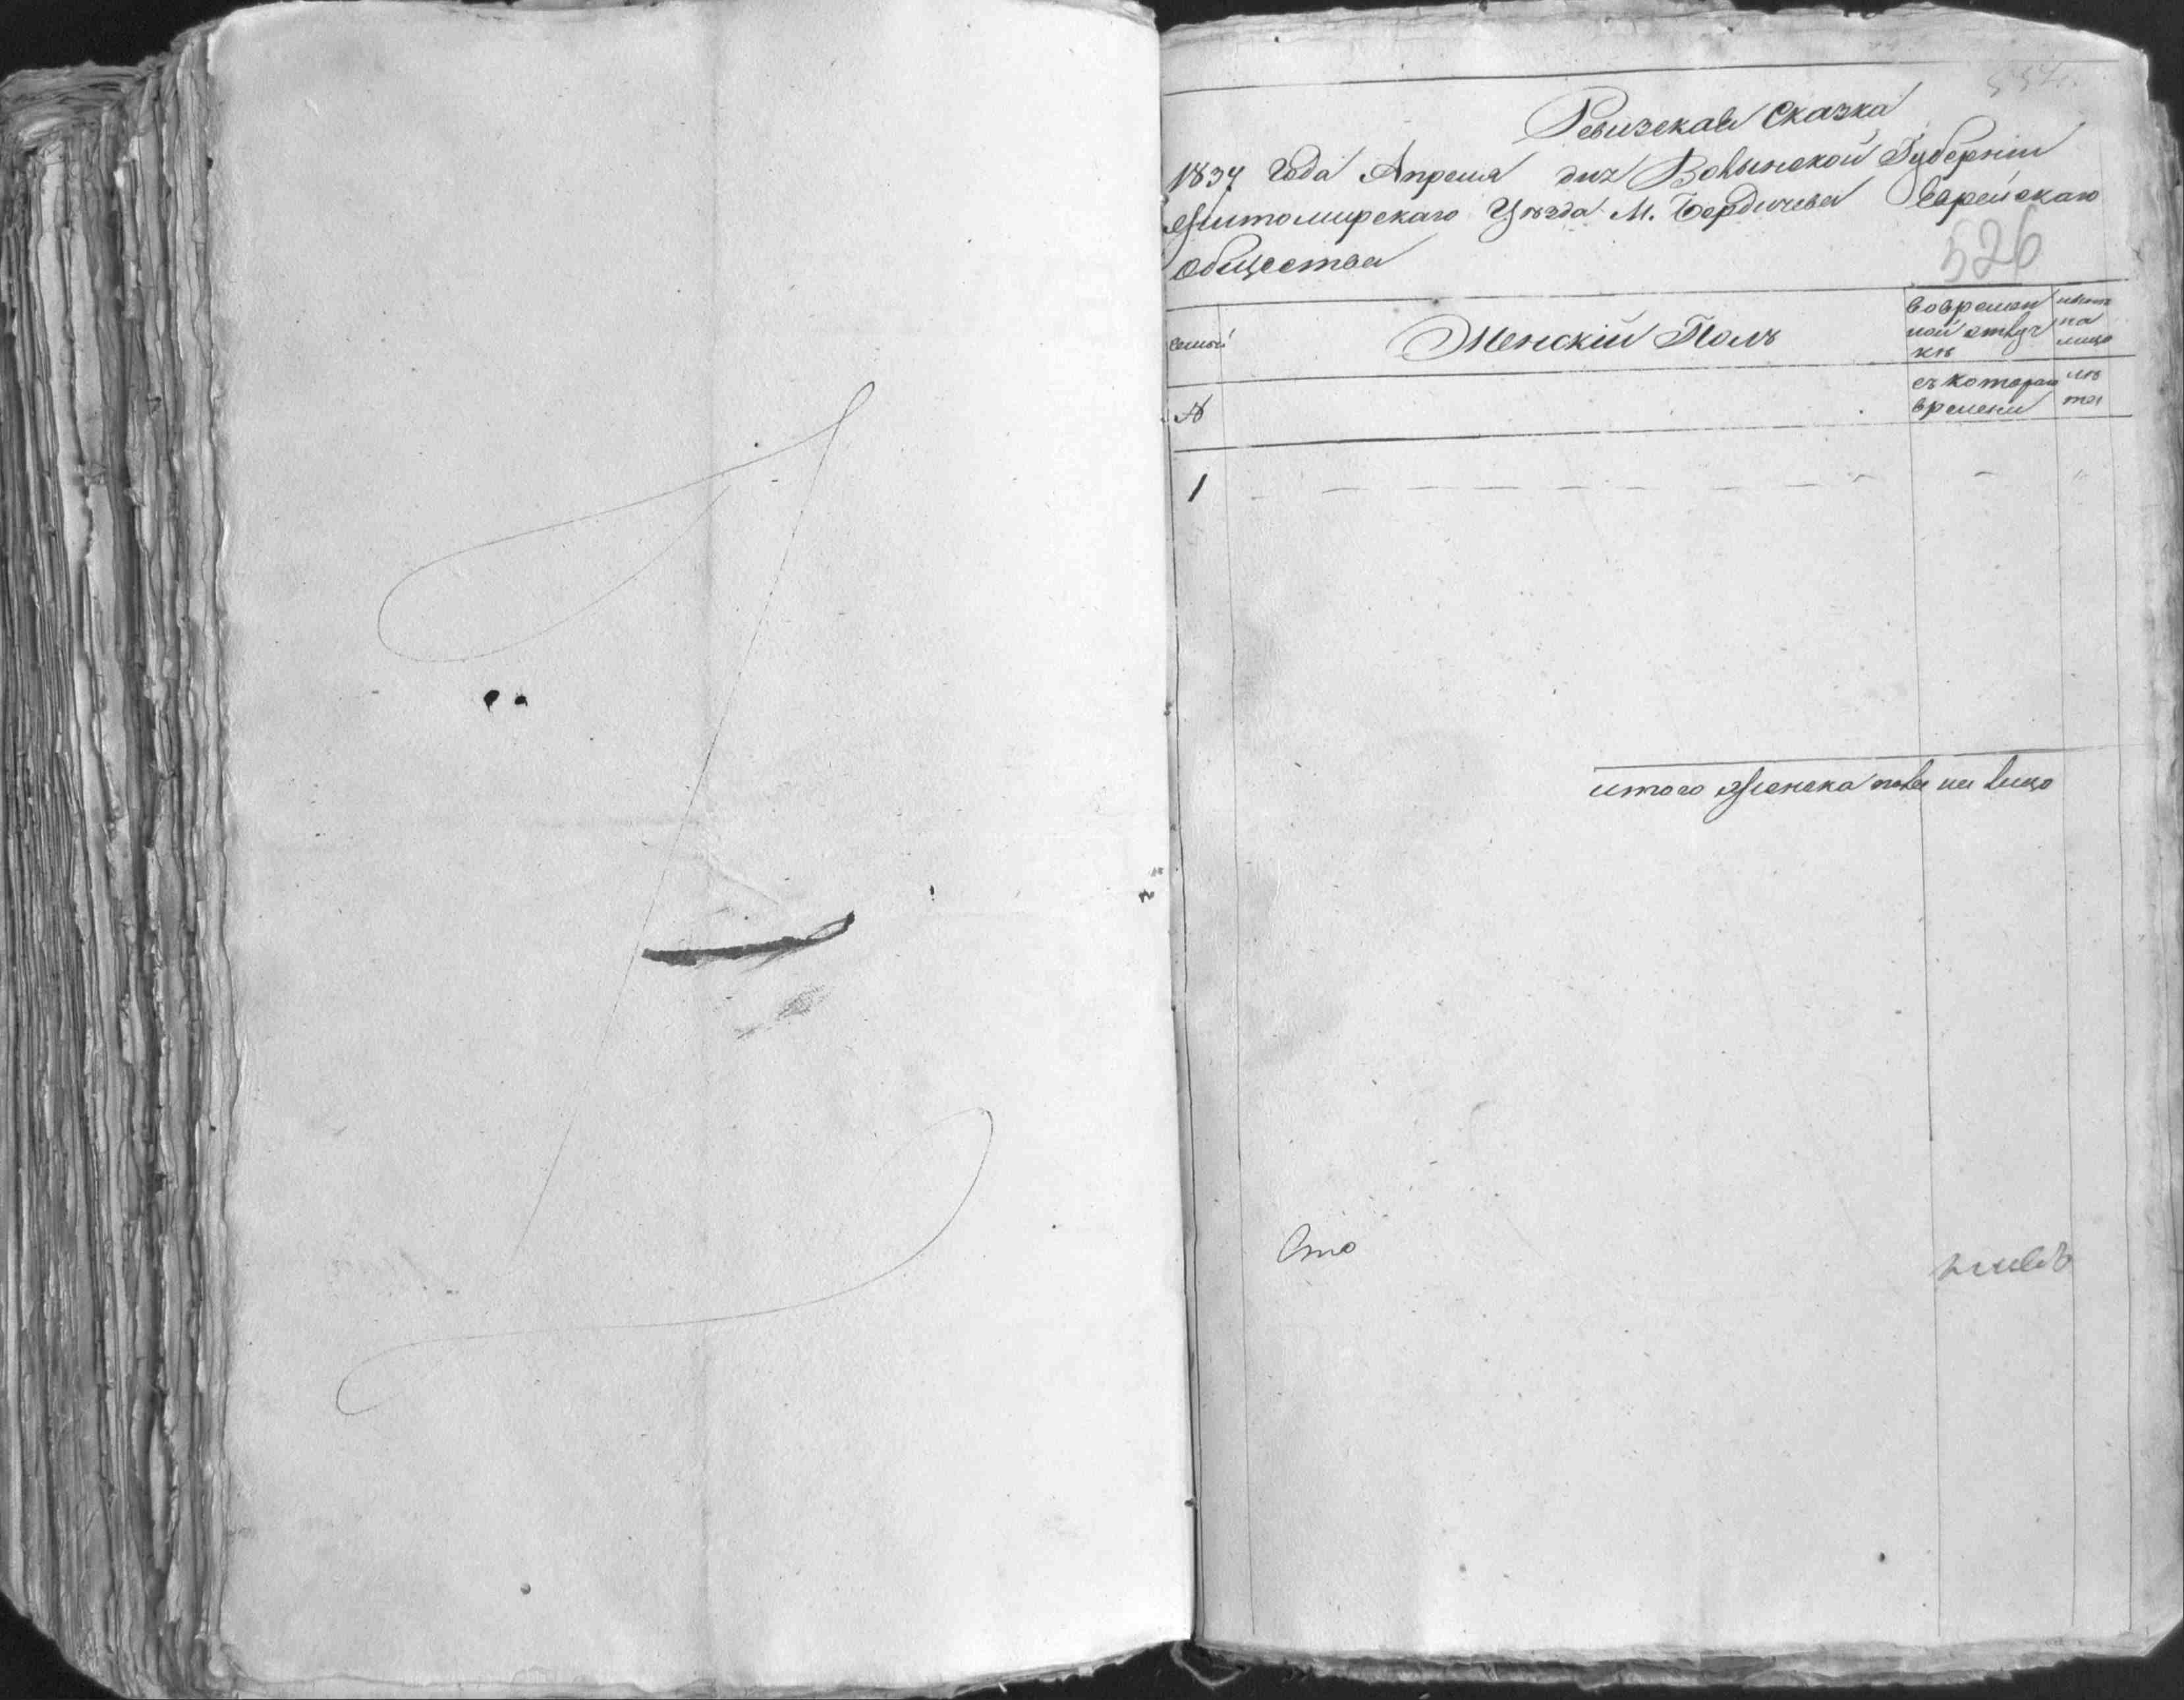 Ревизская Сказка
1834 года Апреля дня Волынской Губернии
Житомирскаго Уѣзда М. Бердичева Еврейскаго
Общества
526
семьи
Женскій Полъ
вовремен
ной отлуч
кѣ
нынѣ
на
лицо
№
съ котораго
времени
лѣ
та
1
итого женска пола на лицо
Сто